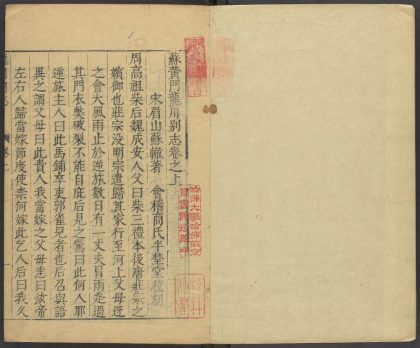 蘇黃門龍川別志卷之上
宋眉山蘇轍著 會稽商氏半埜堂校刻
周高祖柴后魏成安人父曰柴三禮本後唐莊宗之
嬪御也莊宗沒明宗遣歸其家行至河上父母迓
之會大風雨止於逆旅數日有一丈夫冒雨走過
其門衣獘破裂不能自庇后見之驚曰此何人耶
逆旅主人曰此馬鋪卒吏郭雀兒者也后召與語
異之謂父母曰此貴人我當嫁之父母恚曰汝帝
左右人歸當嫁節度使柰何嫁此乞人后曰我久